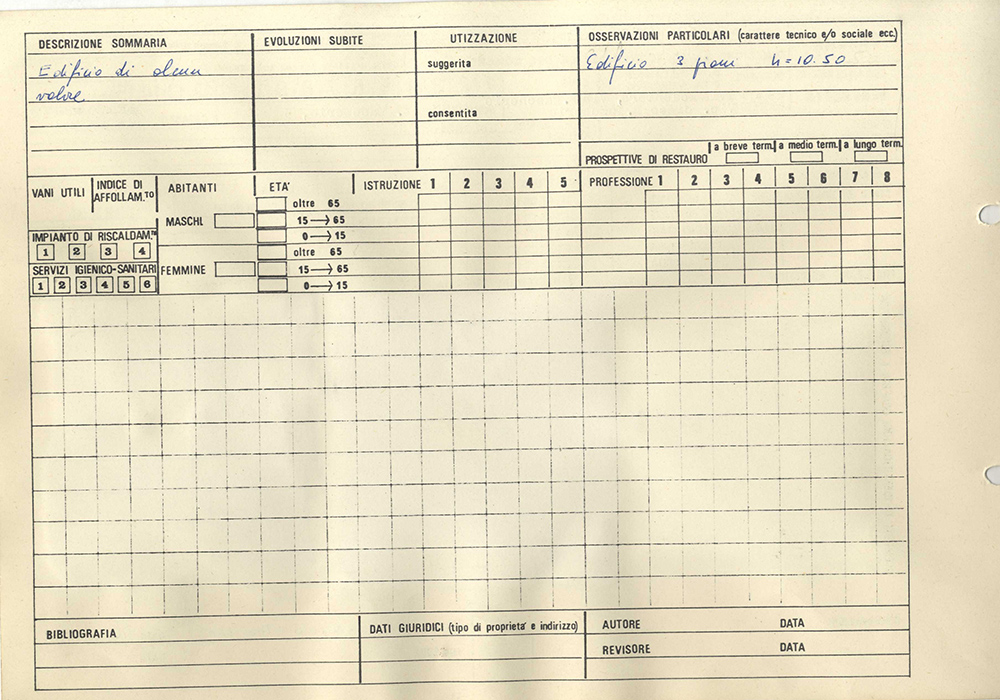 DESCRIZIONE SOMMARIA
Edificio di alcun
valore
EVOLUZIONI SUBITE
UTILIZZAZIONE
suggerita
consentita
OSSERVAZIONI PARTICOLARI (carattere tecnico e/o sociale ecc.)
Edificio 3 piani h=10.50
PROSPETTIVE DI RESTAURO
a breve term. a medio term. a lungo term.
VANI UTILI
INDICE DI
AFFOLLAM.TO
ABITANTI
ETA'
ISTRUZIONE 1 2 3 4 5
PROFESSIONE 1 2 3 4 5 6 7 8
MASCHI
oltre 65
15→65
0→15
IMPIANTO DI RISCALDAM.TO
1 2 3 4
SERVIZI IGIENICO-SANITARI
1 2 3 4 5 6
FEMMINE
oltre 65
15→65
0→15
BIBLIOGRAFIA
DATI GIURIDICI (tipo di proprieta' e indirizzo)
AUTORE DATA
REVISORE DATA